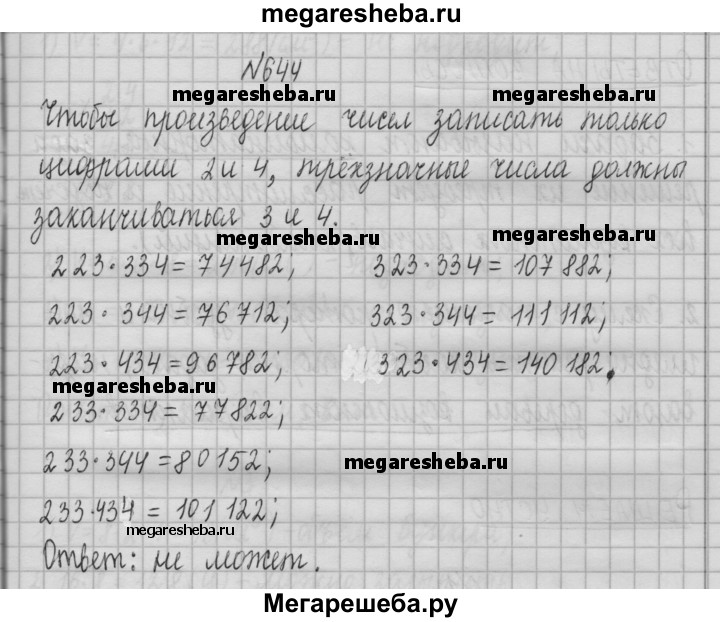 megaresheba.ru
№644
megaresheba.ru megaresheba.ru
Чтобы произведение чисел записать только
цифрами 2 и 4, трёхзначные числа должны
заканчиваться 3 и 4.
megaresheba.ru megaresheba.ru
223·334=74482; 323·334=107882;
223·344=76712; 323·344=111112;
223·434=96782; 323·434=140182;
megaresheba.ru
233·334=77822;
233·344=80152;
megaresheba.ru
233·434=101122;
megaresheba.ru
Ответ: не может.
Мегарешеба.ру